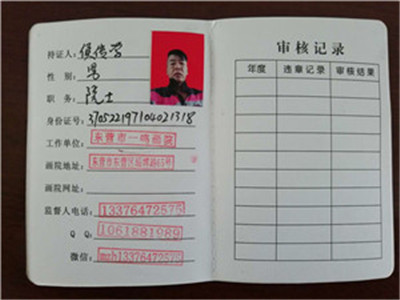 持证人: 侯传学
性 别: 男
职 务: 院士
身份证号: 370522197104021318
工作单位: 东营市一鸣画院
画院地址: 东营市东营区淄博路65号
画院网址:
监督人电话: 13376472575
Q Q: 1061881989
微信: mrh13376472575
审核记录
年度 违章记录 审核结果